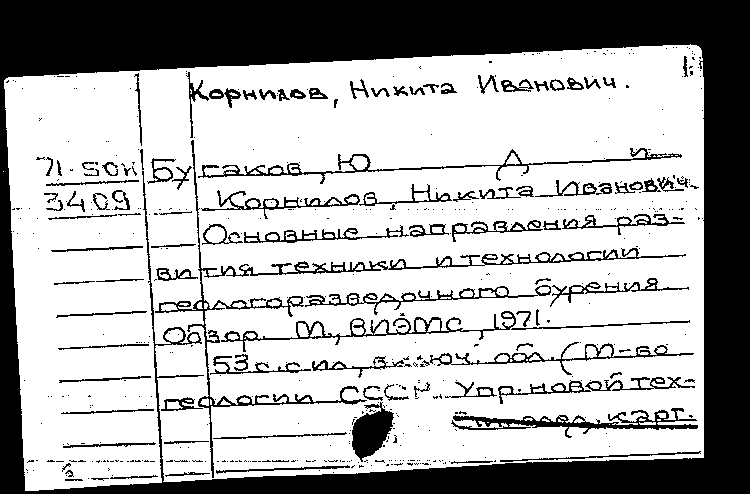 Корнилов, Никита Иванович.
71-5ОН Бугаков, Ю Д и
3409 Корнилов, Никита Иванович
Основные направления раз-
вития техники и технологии
геологоразведочного бурения
Обзор. М., ВИЭМС, 1971.
53 с. с ил., включ. обл. (М-во
геологии СССР. Упр. новой тех-
карт.